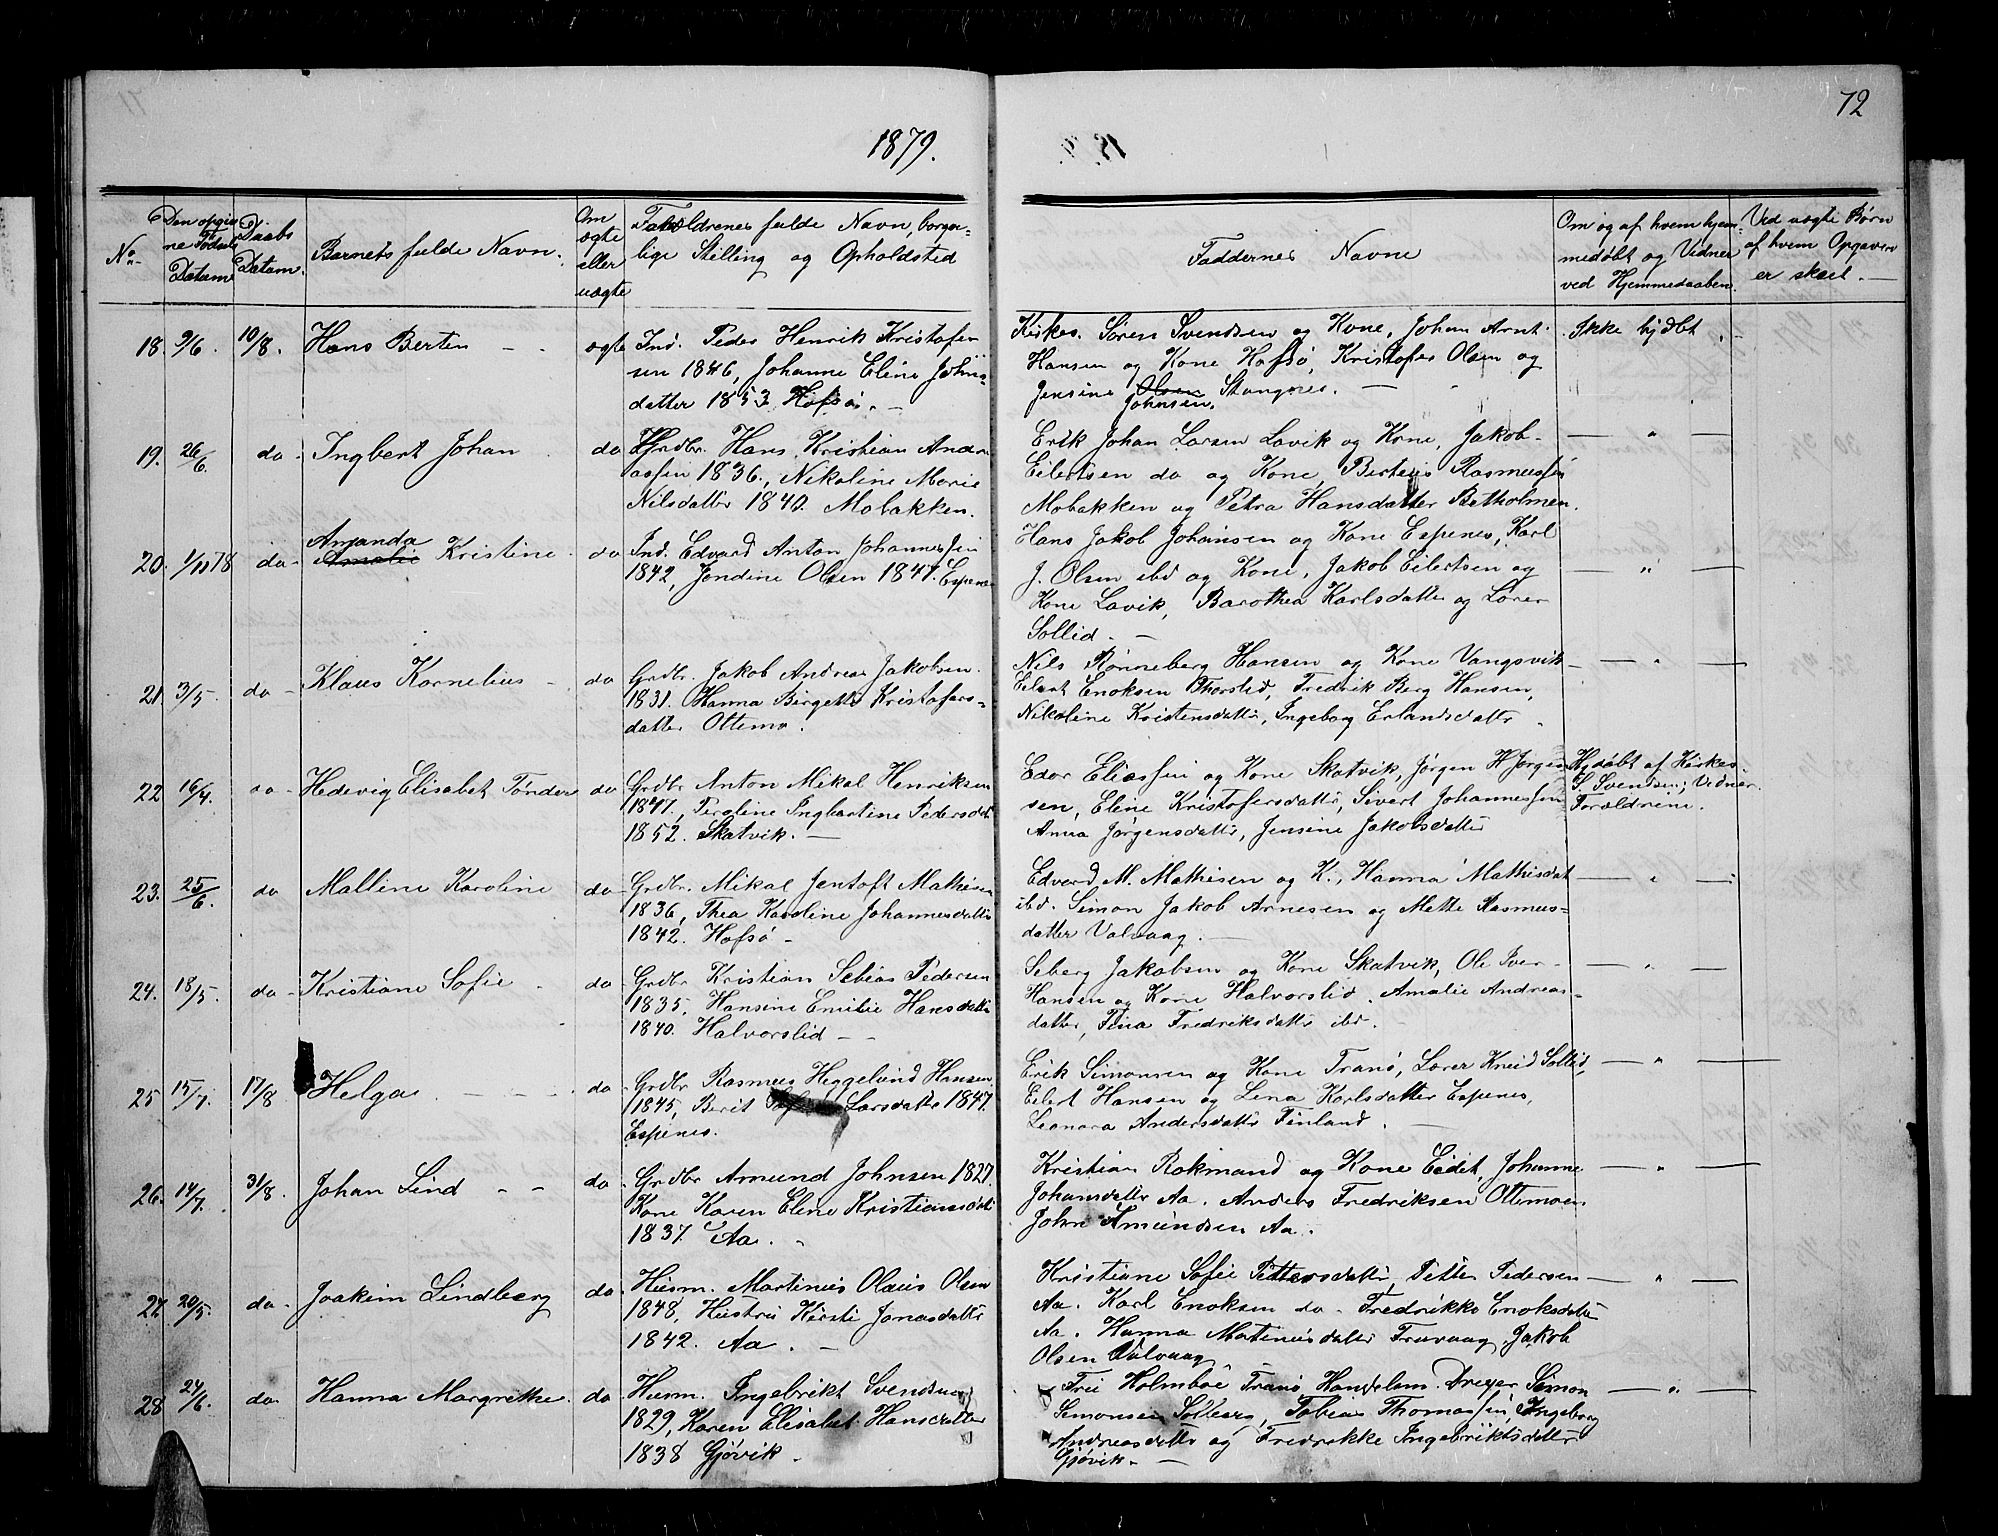 72
1879.
No.
Den opgivne Fødsels Datum
Daabs Datum.
Barnets fulde Navn.
Om ægte eller uægte
Forældrenes fulde Navn, borgerlige Stilling og Opholdsted
Faddernes Navne
Om og af hvem hjemmedøbt og Vidner ved Hjemmedaaben.
Ved uægte Børn af hvem Opgaven er skeet.
18. 9/6. 10/8. Hans Berten ægte Ind. Peder Henrik Kristofer
sen 1846, Johanne Eline Johns
datter 1853 Hofsø.
Kirkes. Søren Svendsen og Kone, Johan Arnt
Hansen og Kone Hofsø, Kristofer Olsen og
Jensine Olsen Stangnes.
Johnsen.
Ikke hjdbt.
19. 26/6. do Ingbert Johan do Grdbr. Hans Kristian Andre
assen 1836, Nikoline Marie
Nilsdatter 1840. Mobakken.
Erik Johan Larsen Lavik og Kone, Jakob
Eilertsen do og Kone, Berteus Rasmussen
Mobakken og Petra Hansdatter Betholmen.
— " —
20. 1/10 78 do Amanda
Amalie Kristine do Ind. Edvard Anton Johannessen
1842, Jondine Olsen 1847. Espenes
Hans Jakob Johansen og Kone Espenes, Karl
J. Olsen ibd og Kone, Jakob Eilertsen og
Kone Lavik, Barothea Karlsdatter og Lorer
Sollid.
— " —
21. 3/5. do Klaus Kornelius do Grdbr. Jakob Andreas Jakobsen
1831. Hanna Birgette Kristofers-
datter Ottemo.
Nils Rønneberg Hansen og Kone Vangsvik
Eilert Enoksen Thorslid, Fredrik Berg Hansen,
Nikoline Kristensdatter, Ingeborg Erlandsdatter
— " —
22 16/4. do Hedevig Elisabet Tønder do Grdbr Anton Mikal Henriksen
1847, Peroline Ingbertine Pedersdat
1852. Skatvik.
Edor Eliassen og Kone Skatvik, Jørgen H Jørgen
sen, Elene Kristofersdatter, Sivert Johannessen
Anna Jørgensdatter, Jensine Jakobsdatter
Hjdøbt af Kirkes.
S. Svendsen; Vidner
Forældrene.
23. 25/6. do Malline Karoline do Grdbr. Mikal Jentoft Mathisen
1836, Thea Karoline Johannesdatter
1842. Hofsø
Edvard M. Mathisen og K., Hanna Mathisdat
ibd. Simon Jakob Arnesen og Mette Rasmus-
datter Valvaag.
— " —
24. 18/5. do Kristiane Sofie do Grdbr Kristian Sebias Pedersen
1835, Hansine Emilie Hansdatter
1840. Halvorslid
Seberg Jakobsen og Kone Skatvik, Ole Iver
Hansen og Kone Halvorslid. Amalie Andreas-
datter, Fina Fredriksdatter ibd.
— " —
25 15/7. 17/8 Helga do Grdbr Rasmus Heggelund Hansen
1845, Berit Larsdatter 1847.
Espenes.
Erik Simonsen og Kone Tranø, Lorer Kneid Sollid,
Eilert Hansen og Lena Karlsdatter Espenes,
Leonora Andersdatter Finland.
— " —
26. 14/7. 31/8. Johan Lind do Grdbr Amund Johnsen 1827.
Kone Karen Elene Kristiansdat
1837. Aa.
Kristian Rokmand og Kone Eidet, Johanne
Johansdatter Aa. Anders Fredriksen Ottemoen
John Amundsen Aa.
— " —
27. 20/5. do Joakim Lindberg do Husm. Martinus Olaus Olsen
1848, Hustru Kirsti Jonasdatter
1842. Aa.
Kristiane Sofie Pettersdatter, Petter Pedersen
Aa. Karl Enoksen do. Fredrikke Enoksdatter
Aa. Hanna Martinusdatter Travaag, Jakob
Olsen Valvaag
— " —
28 24/6. do Hanna Margrethe do Husm. Ingebrikt Svendsen
1829, Karen Elisabet Hansdatter
1838 Gjøvik.
Fru Holmboe Tranø, Handelsm. Dreyer, Simon
Simonsen Solberg, Tobias Thomassen, Ingeborg
Andreasdatter og Fredrikke Ingebriktsdatter
Gjøvik.
— " —